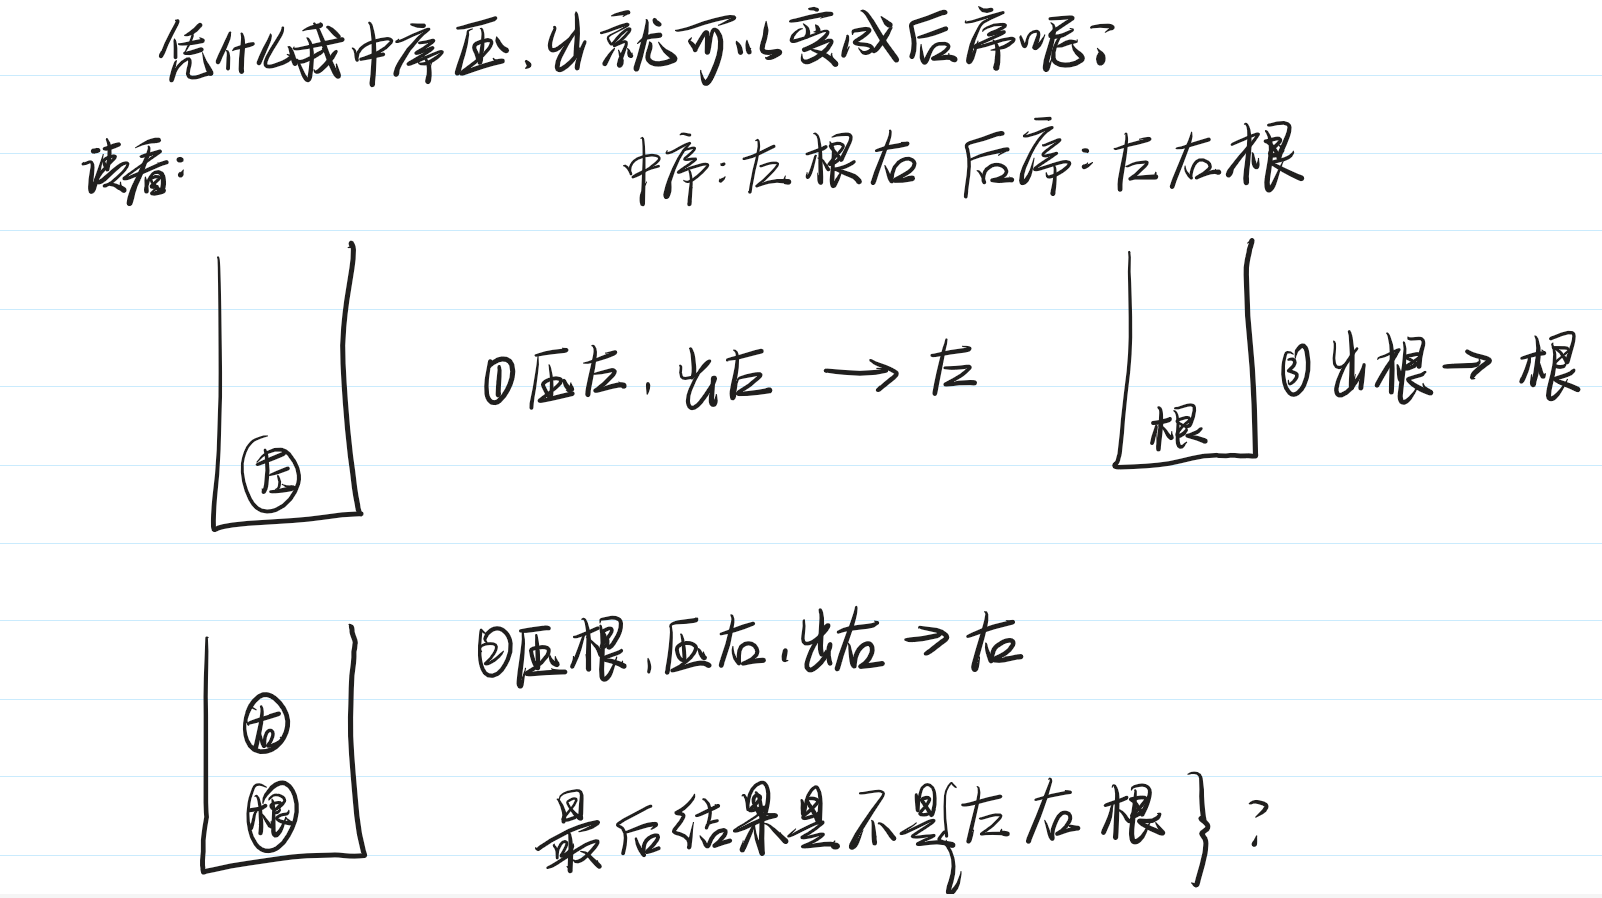 凭什么我中序压,出就可以变成后序呢?
请看:
中序:左根右 后序:左右根
左
①压左,出左 → 左
根
③出根 → 根
②压根,压右,出右 → 右
右
根
最后结果是不是{左右根}?